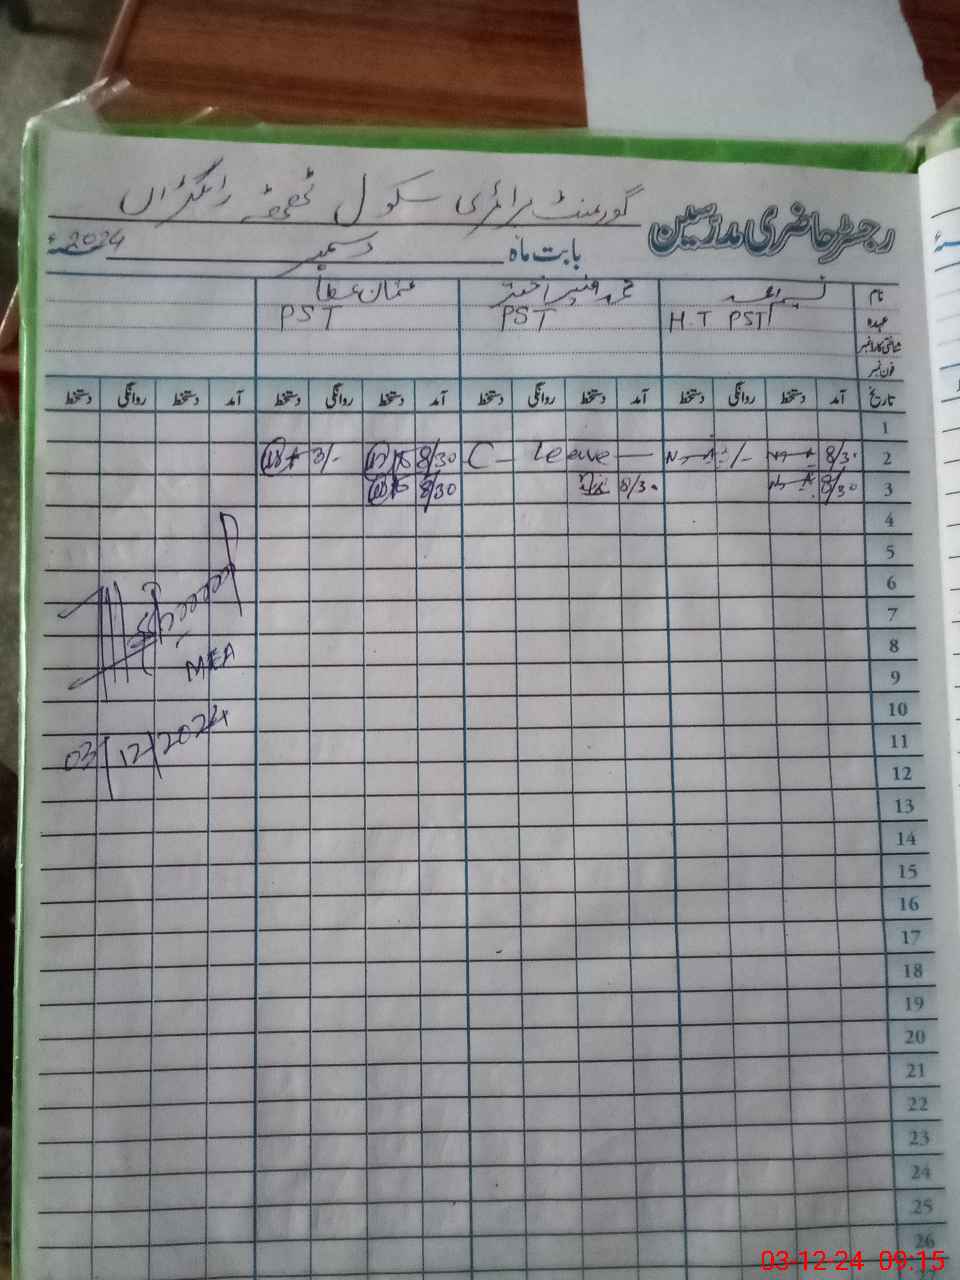 رجسٹر حاضری مدرسین گورنمنٹ پرائمری سکول ٹھٹھہ رانگڑاں
بابت ماہ دسمبر 2024ء
نام محمد اختر عثمان عطا
عہدہ H.T PST PST PST
شناختی کارڈ نمبر
فون نمبر
تاریخ آمد دستخط روانگی دستخط آمد دستخط روانگی دستخط آمد دستخط روانگی دستخط آمد دستخط روانگی دستخط
1
2 8/30 C - Leave - 8/30 3/-
3 8/30 8/30 8/30
4
5
6
7
8
MEA
9
10
03/12/2024
11
12
13
14
15
16
17
18
19
20
21
22
23
24
25
26
03-12-24 09:15